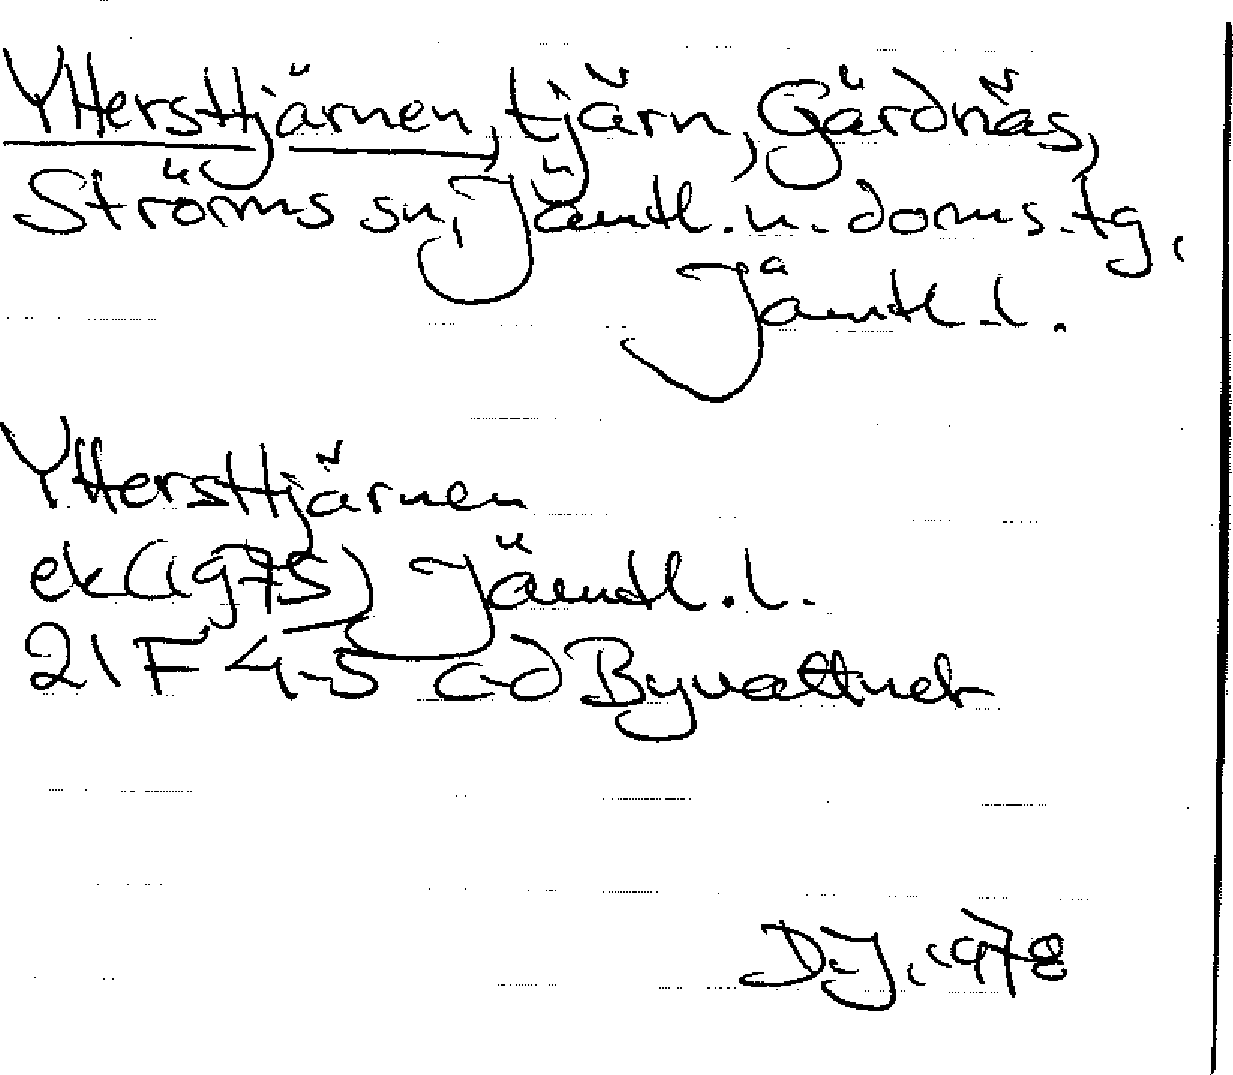 Yttersttjärnen, tjärn, Gärdnäs,
Ströms sn, Jämtl. n. doms. tg,
Jämtl. l.
Yttersttjärnen
ek (1975) Jämtl. l.
21 F 4-5 c-d Byvattnet
D.J. 1978